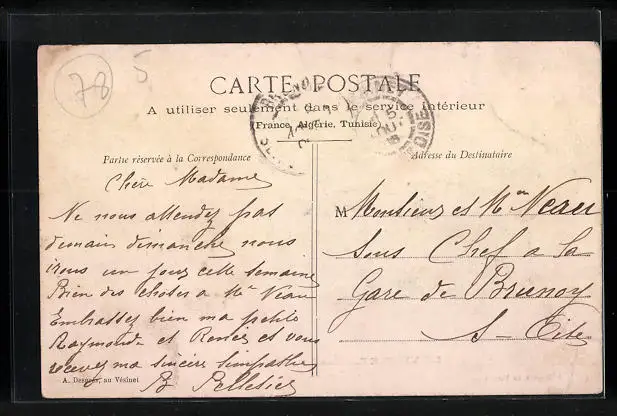 78
5
CARTE POSTALE
A utiliser seulement dans le service intérieur
(France, Algérie, Tunisie)
Partie réservée à la Correspondance
Adresse du Destinataire
Chère Madame
Ne nous attendez pas
demain dimanche nous
irons un jour cette semaine
Bien des choses a Mr Veau
Embrassez bien ma petite
Raymonde et Renée et vous
recevez ma sincère simpathie
B Pelletier
M Monsieur et Mme Veau
Sous Chef a la
Gare de Brunoy
S- Oise
A. Desprez, au Vésinet